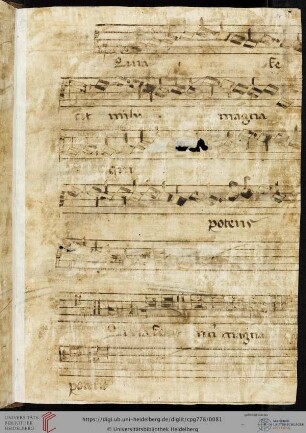 Quia fe
cit mihi magna
qui
potens
magna
potens
UNIVERSITÄTS-
BIBLIOTHEK
HEIDELBERG
https://digi.ub.uni-heidelberg.de/diglit/cpg778/0081
© Universitätsbibliothek Heidelberg